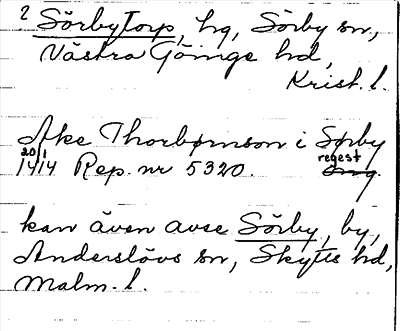 ? Sörbytorp, hg, Sörby sn,
Västra Göinge hd,
Krist. l.
Ake Thorbørnson i Sørby
20/1 1414 Rep. nr 5320. regest
kan även avse Sörby, by,
Anderslövs sn, Skytts hd,
Malm. l.